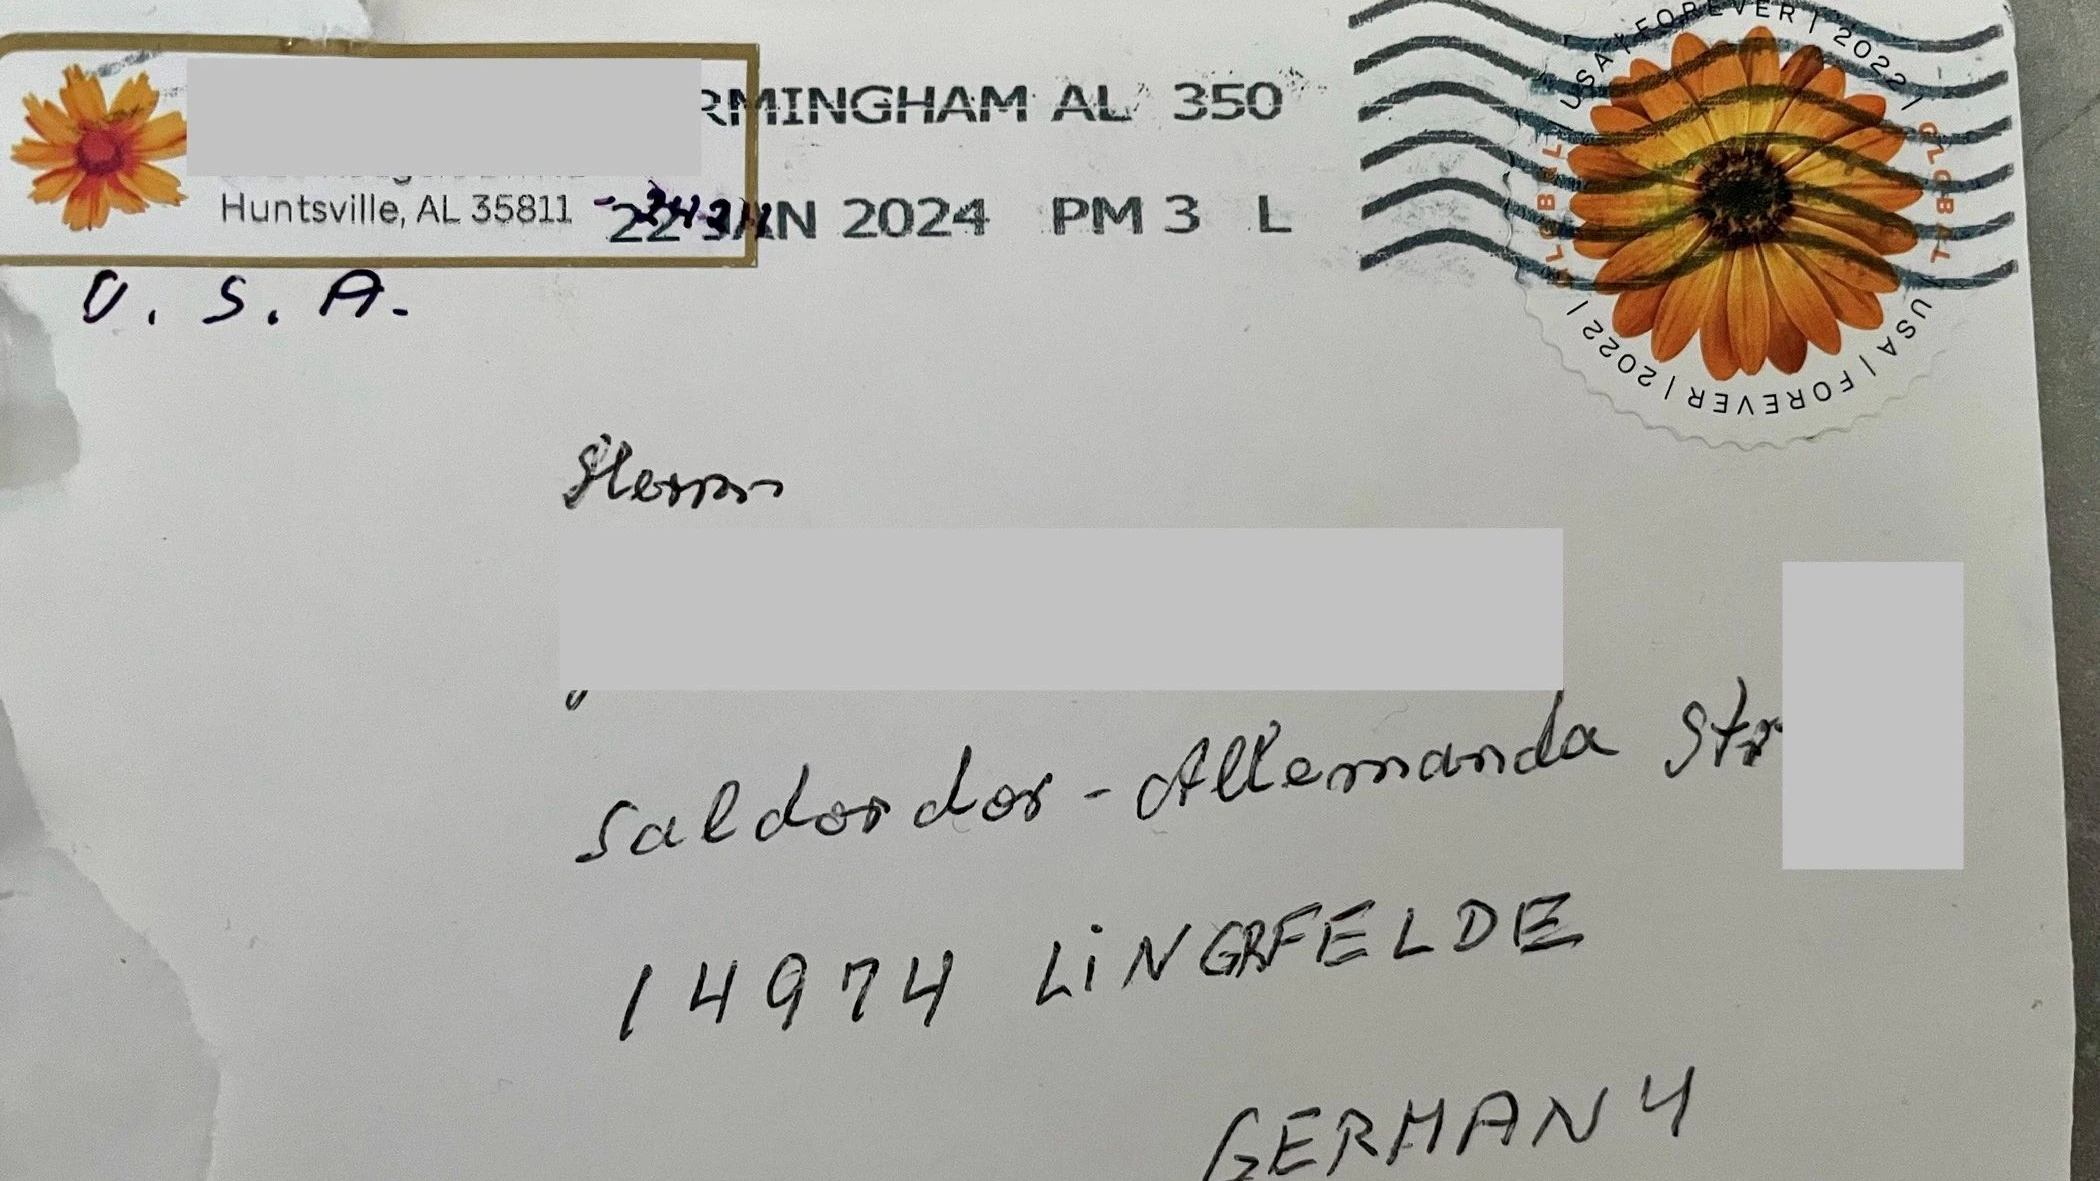 RMINGHAM AL 350
Huntsville, AL 35811
22 JAN 2024 PM 3 L
U. S. A.
USA | FOREVER | 2022 | GLOBAL | USA | FOREVER | 2022 | GLOBAL
Herrn
Saldordor-Allemanda Str
14974 LiNGRFELDE
GERMANY